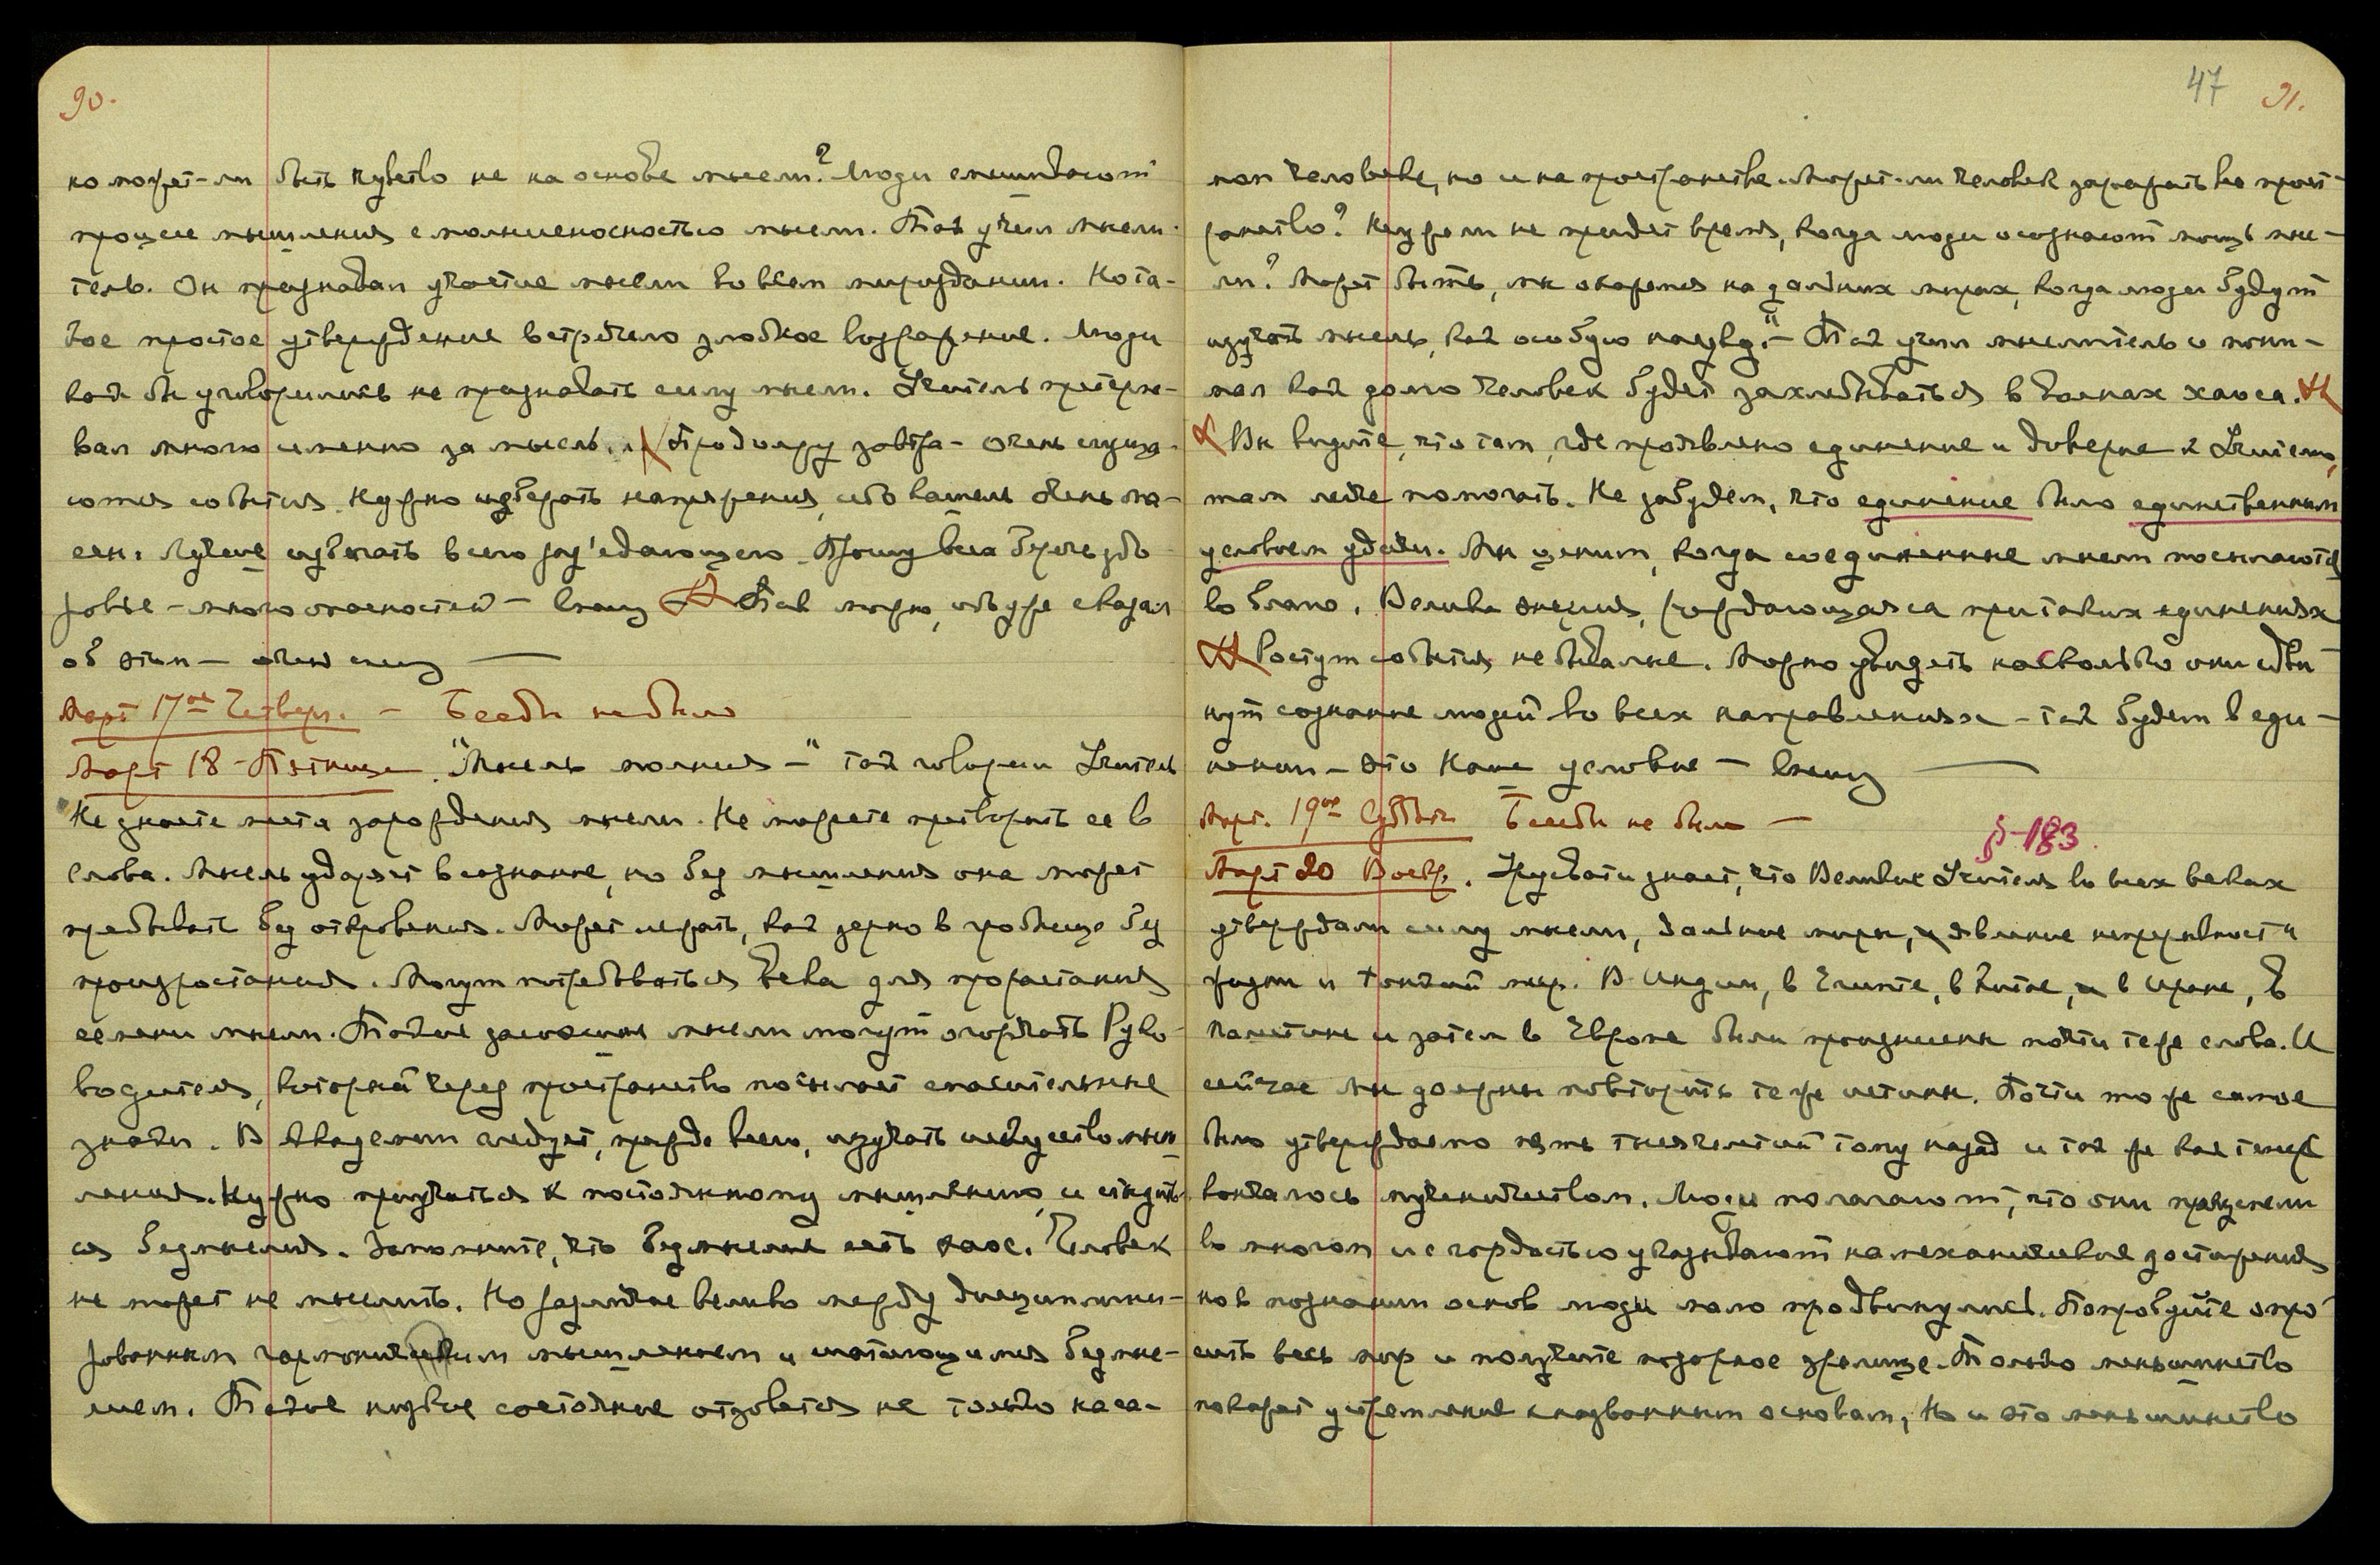 90.
но может-ли быть чувство не на основе мысли? Люди смешивают
процесс мышления с молниеносностью мысли. Так учил мысли-
тель. Он признавал участие мысли во всем мироздании. Но та-
кое простое утверждение встречало злобное возражение. Люди
как бы уговорились не признавать силу мысли. Учитель претерпе-
вал много именно за мысль. Продолжу завтра - очень сгуща-
ются события. Нужно избегать напряжения, ибо кашель очень опа-
сен. Лучше избегать всего раз'едающего. Прошу всех беречь здо-
ровье - много опасностей - спешу Так можно, ибо уже сказал
об этом - очень спешу —
Март 17ое Четверг. - Беседы не было
Март 18 - Пятница. "Мысль молния -" так говорил Учитель
Не знаете места зарождения мысли. Не можете претворить ее в
слова. Мысль ударяет в сознание, но без мышления она может
пребывать без откровения. Может лежать, как зерно в гробнице без
произрастания. Могут потребоваться века для прорастания
семени мысли. Такие засохшие мысли могут огорчать Руко-
водителя, который через пространство посылает спасительные
знаки. В Академии следует, прежде всего, изучать искусство мыш-
ления. Нужно приучаться к постоянному мышлению и стыдить-
ся безмыслия. Запомните, что безмыслие есть хаос. Человек
не может не мыслить. Но различие велико между дисциплини-
рованным гармоническим мышлением и шатающимся безмыс-
лием. Такое низкое состояние отзовется не только на са-
47 91.
мом человеке, но и на пространстве. Может-ли человек заражать все прост-
ранство? Неужели не придет время, когда люди осознают мощь мыс-
ли? Может быть, мы окажемся на дальних мирах, когда люди будут
изучать мысль, как особую науку." - Так учил мыслитель и пони-
мал как долго человек будет захлебываться в волнах хаоса.
Вы видите, что там, где проявлено единение и доверие к Учителю,
там легче помогать. Не забудем, что единение было единственным
условием удачи. Мы ценим, когда соединенные мысли посылаются
во благо. Велика энергия, рождающаяся при таких единениях
Растут события небывалые. Можно увидеть насколько они сдви-
нут сознание людей во всех направлениях - так будем в еди-
нении - это Наше условие - спешу —
Март. 19ое Суббота Беседы не было -
§-183.
Март 20 Воскр. Урусвати знает, что Великие Учителя во всех веках
утверждали силу мысли, дальние миры, явление непрерывности
жизни и тонкий мир. В Индии, в Египте, в Китае, в Иране, в
Палестине и затем в Европе были произнесены почти те же слова. И
сейчас Мы должны повторить те же истины. Почти то же самое
было утверждаемо пять тысячелетий тому назад и так же как теперь
кончалось мученичеством. Люди полагают, что они преуспели
во многом и с гордостью указывают на механические достижения
но в познании основ люди мало продвинулись. Попробуйте опро-
сить весь мир и получите позорное зрелище. Только меньшинство
покажет устремление к названным основам, но и это меньшинство